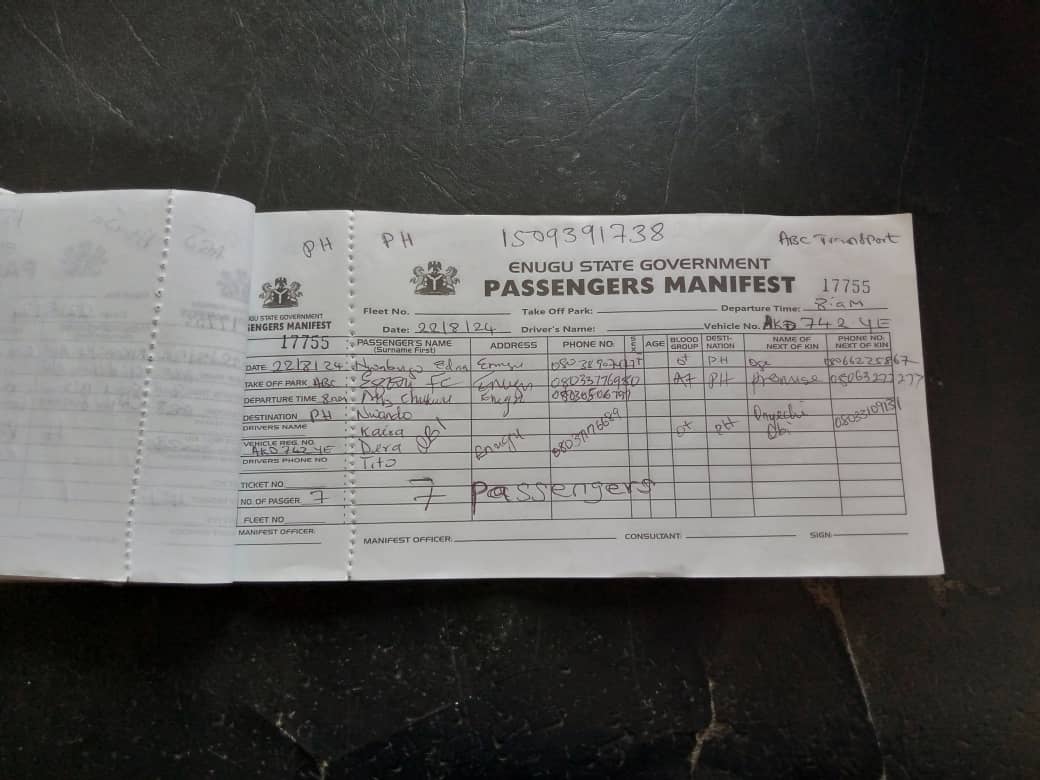 PH
GU STATE GOVERNMENT
ENGERS MANIFEST
17755
DATE 22/8/24
TAKE OFF PARK ABC
DEPARTURE TIME 8am
DESTINATION PH
DRIVERS NAME
VEHICLE REG. NO.
AKD 742 YE
DRIVERS PHONE NO
TICKET NO
NO. OF PASGER 7
FLEET NO
MANIFEST OFFICER
PH 1509391738 ABC Transport
ENUGU STATE GOVERNMENT
PASSENGERS MANIFEST 17755
Fleet No. Take Off Park: Departure Time: 8:am
Date: 22/8/24 Driver's Name: Vehicle No. AKD 742 YE
PASSENGER'S NAME (Surname First) ADDRESS PHONE NO. SEX AGE BLOOD GROUP DESTI-NATION NAME OF NEXT OF KIN PHONE NO. NEXT OF KIN
Edna Enugu O+ PH
FC Enugu PH Promise
Mrs Enugu
Nwando
Kaira Obi Onyechi
Dera Enugu O+ PH Obi
Tito
7 Passengers
MANIFEST OFFICER: CONSULTANT: SIGN: